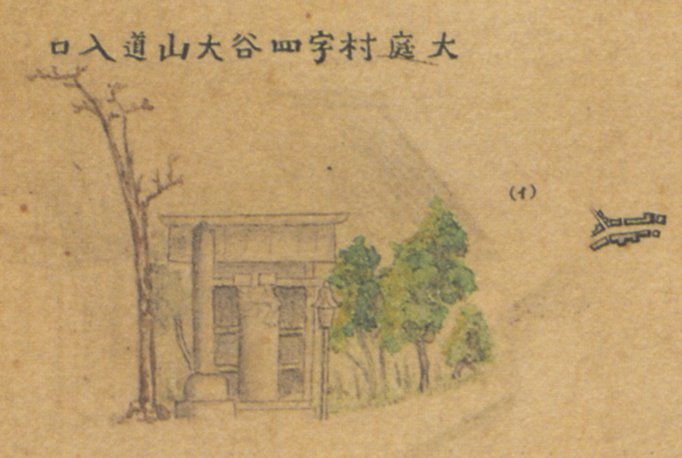 大庭村字四谷大山道入口
(イ)